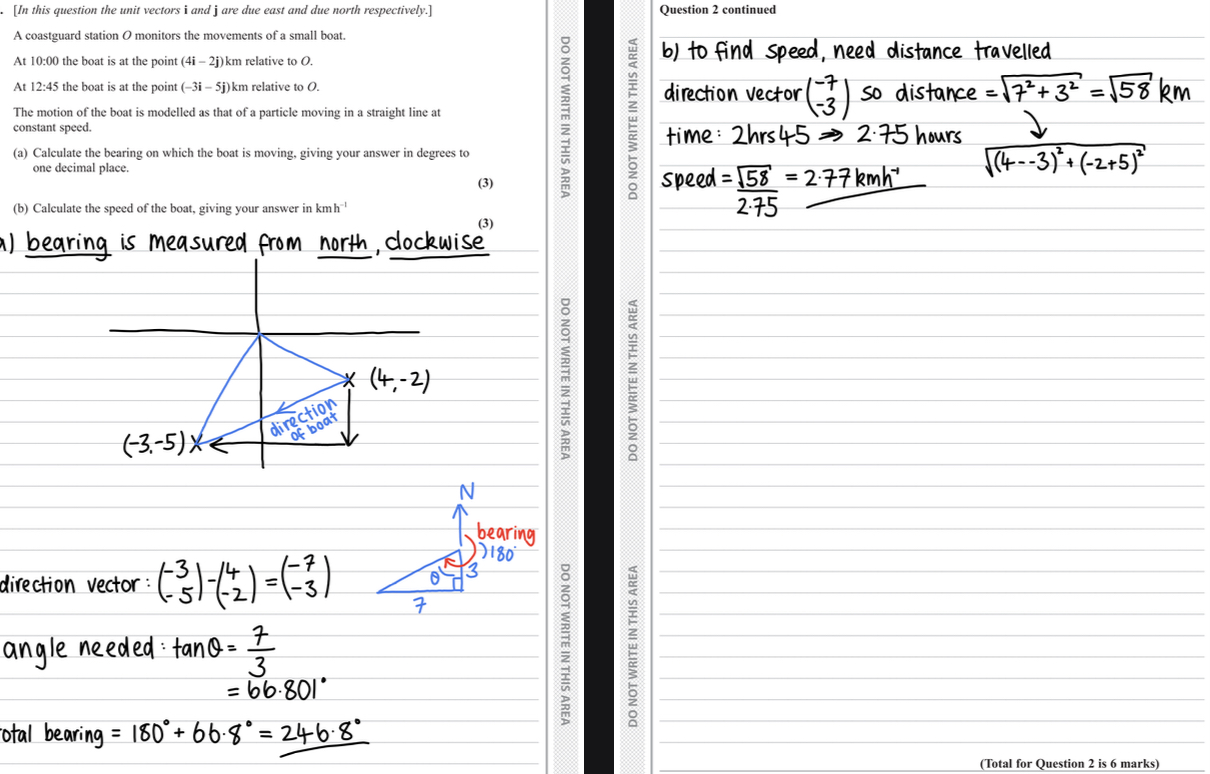 . [In this question the unit vectors i and j are due east and due north respectively.]
A coastguard station O monitors the movements of a small boat.
At 10:00 the boat is at the point (4i – 2j) km relative to O.
At 12:45 the boat is at the point (–3i – 5j) km relative to O.
The motion of the boat is modelled as that of a particle moving in a straight line at
constant speed.
(a) Calculate the bearing on which the boat is moving, giving your answer in degrees to
one decimal place.
(3)
(b) Calculate the speed of the boat, giving your answer in km h⁻¹
(3)
a) bearing is measured from north, clockwise
(4,-2)
direction
of boat
(-3,-5)
N
bearing
180°
θ
3
7
direction vector : (-3 -5) - (4 -2) = (-7 -3)
angle needed : tanθ = 7/3
= 66.801°
total bearing = 180° + 66.8° = 246.8°
DO NOT WRITE IN THIS AREA
DO NOT WRITE IN THIS AREA
DO NOT WRITE IN THIS AREA
DO NOT WRITE IN THIS AREA
DO NOT WRITE IN THIS AREA
DO NOT WRITE IN THIS AREA
Question 2 continued
b) to find speed, need distance travelled
direction vector (-7 -3) so distance = √7² + 3² = √58 km
time : 2hrs 45 ⇒ 2.75 hours
√(4--3)² + (-2+5)²
speed = √58/2.75 = 2.77 kmh⁻¹
(Total for Question 2 is 6 marks)